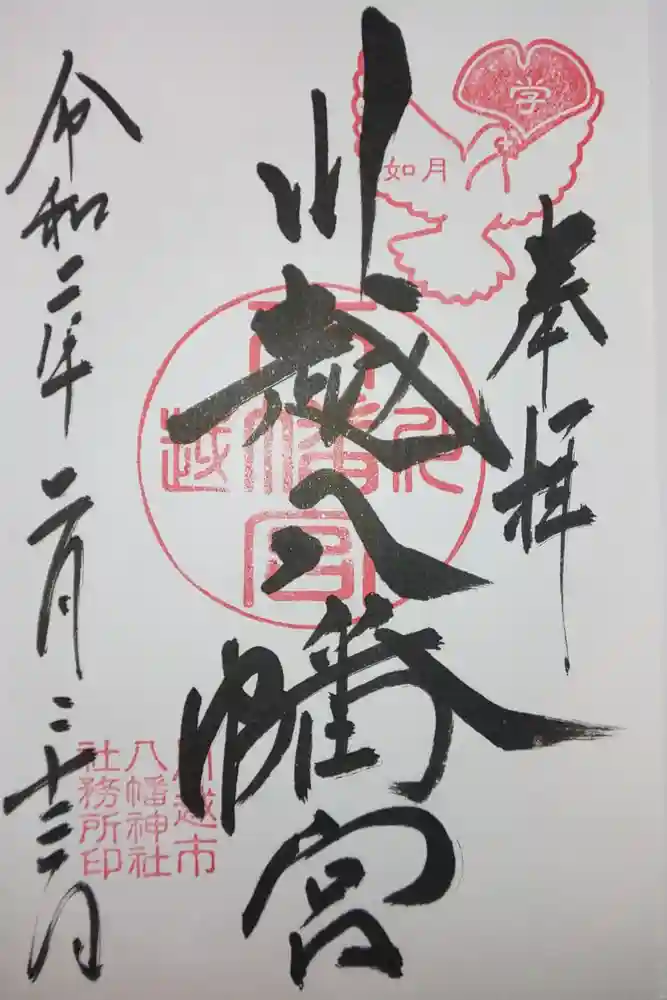 奉拝
学
如月
川越八幡宮
川越
八幡宮
川越市
八幡神社
社務所印
令和二年二月二十三日